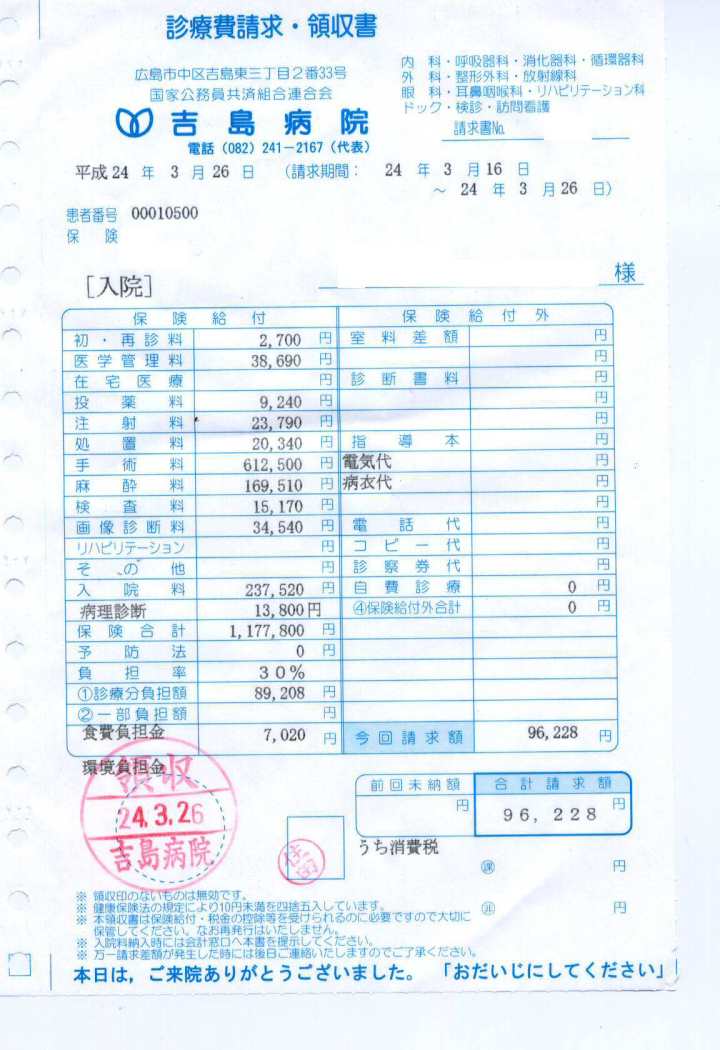 診療費請求・領収書
広島市中区吉島東三丁目2番33号
国家公務員共済組合連合会
吉島病院
電話(082)241-2167(代表)
内 科・呼吸器科・消化器科・循環器科
外 科・整形外科・放射線科
眼 科・耳鼻咽喉科・リハビリテーション科
ドック・検診・訪問看護
請求書No.
平成24 年 3 月 26 日 (請求期間: 24 年 3 月 16 日
～ 24 年 3 月 26 日)
患者番号 00010500
保 険
[入院] 様
保険給付 保険給付外
初・再診料 2,700 円 室料差額 円
医学管理料 38,690 円 円
在宅医療 円 診断書料 円
投薬料 9,240 円 円
注射料 23,790 円 円
処置料 20,340 円 指導本 円
手術料 612,500 円 電気代 円
麻酔料 169,510 円 病衣代 円
検査料 15,170 円 円
画像診断料 34,540 円 電話代 円
リハビリテーション 円 コピー代 円
その他 円 診察券代 円
入院料 237,520 円 自費診療 0 円
病理診断 13,800円 ④保険給付外合計 0 円
保険合計 1,177,800 円
予防法 0 円
負担率 30%
①診療分負担額 89,208 円
②一部負担額 円
食費負担金 7,020 円 今回請求額 96,228 円
環境負担金
領収
24.3.26
吉島病院
前回未納額 合計請求額
円 96,228 円
うち消費税
課 円
円
※ 領収印のないものは無効です。
※ 健康保険法の規定により10円未満を四捨五入しています。
※ 本領収書は保険給付・税金の控除等を受けられるのに必要ですので大切に
保管してください。なお再発行はいたしません。
※ 入院料納入時には会計窓口へ本書を提示してください。
※ 万一請求差額が発生した時には後日ご連絡いたしますのでご了承ください。
本日は,ご来院ありがとうございました。 「おだいじにしてください」